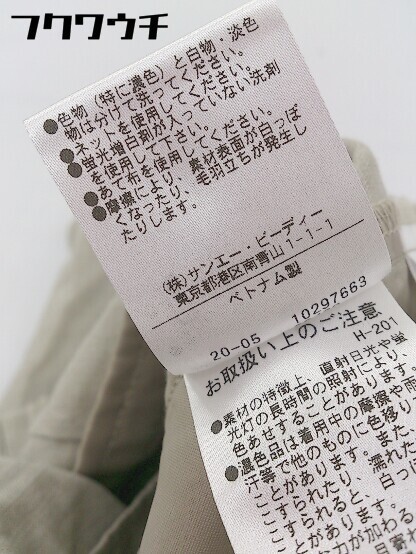 フクワウチ
●色物(特に濃色)と白物・淡色
物は分けて洗ってください。
●ネットを使用してください。
●蛍光増白剤が入っていない洗剤
を使用して下さい。
●あて布を使用してください。
●摩擦により、素材表面が白っぽ
くなったり、毛羽立ちが発生し
たりします。
(株)サンエー・ビーディー
東京都港区南青山1-1-1
ベトナム製
20-05 10297663
お取扱い上のご注意
H-201
●素材の特徴上、直射日光や蛍
光灯の長時間の照射により、
色あせすることがあります。
●濃色品は着用中の摩擦や
汗等で他のものに色移り
ことがあります。また、
こすられたり、濡れた
こすられると、白っ
ことがあります。
力が加わる